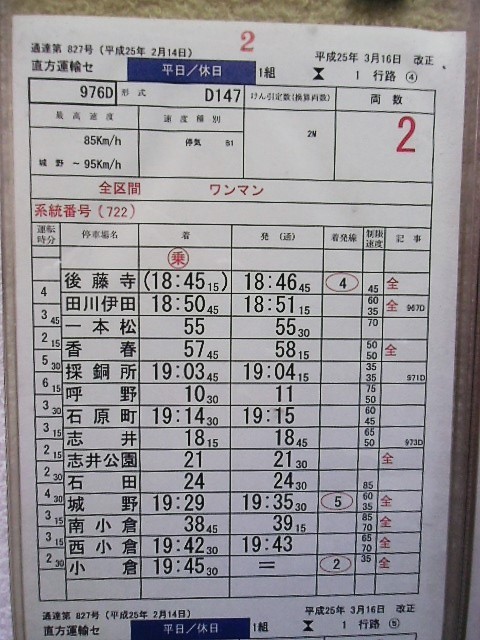 2
通達第 827号（平成25年 2月14日） 平成25年 3月16日 改正
直方運輸セ 平日／休日 1組 1 行路 ④
976D 形 式 D147 けん引定数(換算両数) 両 数
最 高 速 度 速 度 種 別
85Km/h 停気 B1 2M 2
城 野 ～ 95Km/h
全区間 ワンマン
系統番号（722）
運転時分 停車場名 着 発（通） 着発線 制限速度 記 事
乗
4 後 藤 寺 (18:45 15) 18:46 45 4 45 全
3 45 田川伊田 18:50 45 18:51 15 60 35 全 967D
2 15 一 本 松 55 55 30 70
5 30 香 春 57 45 58 15 50 50 全
6 15 採 銅 所 19:03 45 19:04 15 35 35 971D
3 30 呼 野 10 30 11 75 50
3 30 石 原 町 19:14 30 19:15 60 45
3 15 志 井 18 15 18 45 65 50 973D
2 15 志井公園 21 21 30 全
2 30 石 田 24 24 30 85
4 30 城 野 19:29 19:35 30 5 60 35 全
3 15 南 小 倉 38 45 39 15 85 70 全
3 15 西 小 倉 19:42 30 19:43 65 70 全
2 30 小 倉 19:45 30 ＝ 2 35 全
通達第 827号（平成25年 2月14日） 平成25年 3月16日 改正
直方運輸セ 平日／休日 1組 1 行路 ⑤